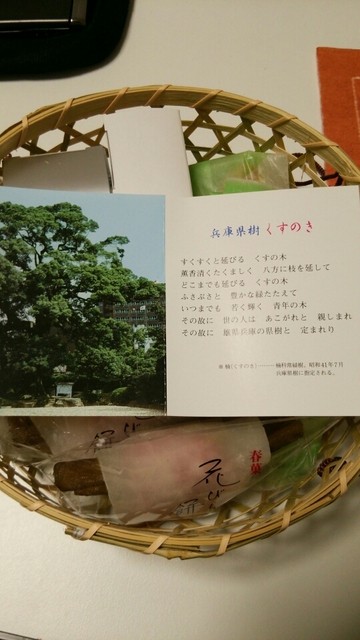 兵庫県樹 くすのき
すくすくと延びる くすの木
薫香清くたくましく 八方に枝を延して
どこまでも延びる くすの木
ふさぶさと 豊かな緑たたえて
いつまでも 若く輝く 青年の木
その故に 世の人は あこがれと 親しまれ
その故に 雄県兵庫の県樹と 定まれり
※ 楠(くすのき)―――楠科常緑樹。昭和41年7月
兵庫県樹に制定される。
春菓
花び